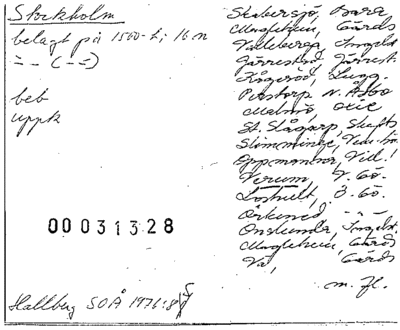 Stockholm
belagt på 1500-t; 16 n
= - (- - =)
beb
uppk
000313 28
Hallberg SOÅ 1976:8
Skabersjö, Bara
Maglehem, Gärds
Valleberga, Ingelst
Järrestad, Järrest.
Kågeröd, Lugg.
Perstorp N. Åsbo
Malmö, Oxie
St. Slågarp, Skytts
Slimminge, Vem
Gppmanna, Vill.
Verum, V. Gö.
Loshult, Ö. Gö.
Örkened - " -
Onslunda, Ingelst.
Maglehem, Gärds
Vä, Gärds
m. fl.